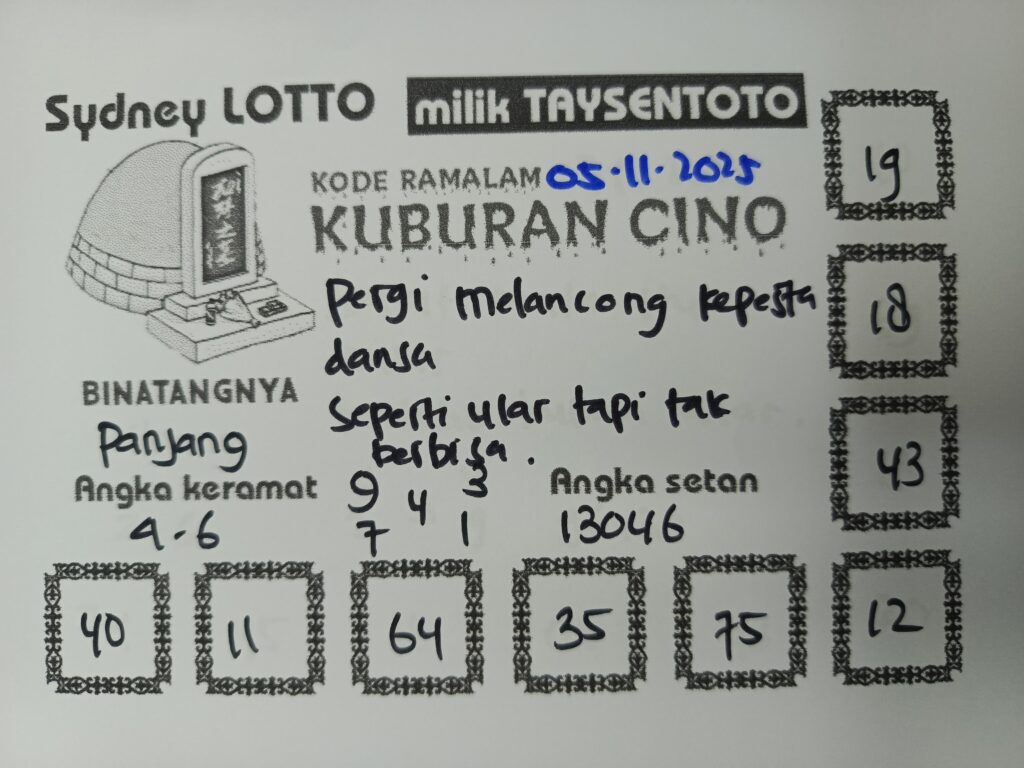 Sydney LOTTO
milik TAYSENTOTO
KODE RAMALAM 05.11.2025
KUBURAN CINO
Pergi melancong kepesta
dansa
seperti ular tapi tak
berbisa.
BINATANGNYA
Panjang
Angka keramat
4-6
9 4 3
7 1
Angka setan
13046
19
18
43
40 11 64 35 75 12